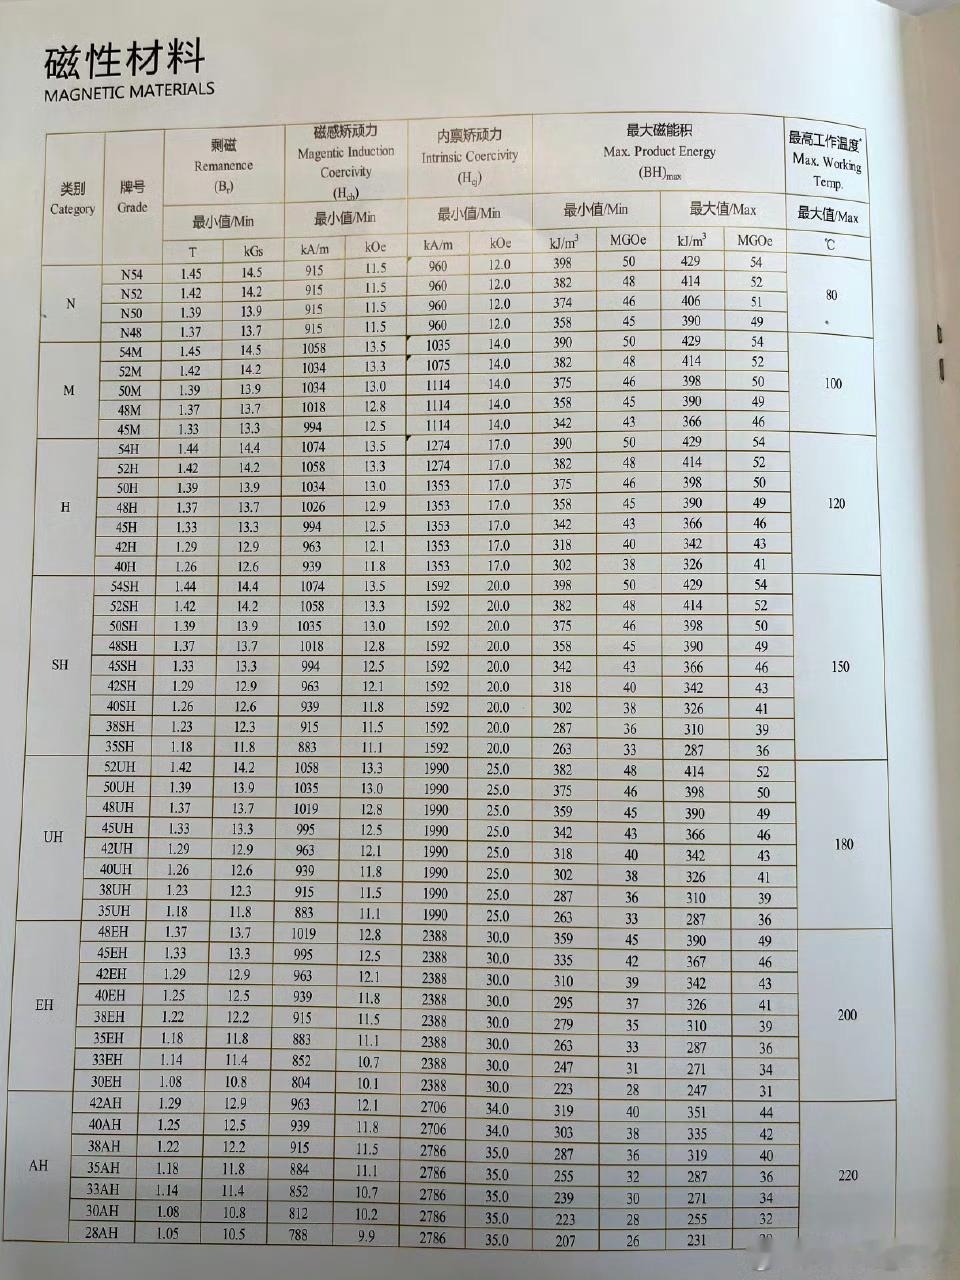 磁性材料
MAGNETIC MATERIALS
类别 Category 牌号 Grade 剩磁 Remanence (Br) 磁感矫顽力 Magentic Induction Coercivity (Hcb) 内禀矫顽力 Intrinsic Coercivity (Hcj) 最大磁能积 Max. Product Energy (BH)max 最高工作温度* Max. Working Temp.
最小值/Min 最小值/Min 最小值/Min 最小值/Min 最大值/Max 最大值/Max
T kGs kA/m kOe kA/m kOe kJ/m³ MGOe kJ/m³ MGOe ℃
N 80
N54 1.45 14.5 915 11.5 960 12.0 398 50 429 54
N52 1.42 14.2 915 11.5 960 12.0 382 48 414 52
N50 1.39 13.9 915 11.5 960 12.0 374 46 406 51
N48 1.37 13.7 915 11.5 960 12.0 358 45 390 49
M 100
54M 1.45 14.5 1058 13.5 1035 14.0 390 50 429 54
52M 1.42 14.2 1034 13.3 1075 14.0 382 48 414 52
50M 1.39 13.9 1034 13.0 1114 14.0 375 46 398 50
48M 1.37 13.7 1018 12.8 1114 14.0 358 45 390 49
45M 1.33 13.3 994 12.5 1114 14.0 342 43 366 46
H 120
54H 1.44 14.4 1074 13.5 1274 17.0 390 50 429 54
52H 1.42 14.2 1058 13.3 1274 17.0 382 48 414 52
50H 1.39 13.9 1034 13.0 1353 17.0 375 46 398 50
48H 1.37 13.7 1026 12.9 1353 17.0 358 45 390 49
45H 1.33 13.3 994 12.5 1353 17.0 342 43 366 46
42H 1.29 12.9 963 12.1 1353 17.0 318 40 342 43
40H 1.26 12.6 939 11.8 1353 17.0 302 38 326 41
SH 150
54SH 1.44 14.4 1074 13.5 1592 20.0 398 50 429 54
52SH 1.42 14.2 1058 13.3 1592 20.0 382 48 414 52
50SH 1.39 13.9 1035 13.0 1592 20.0 375 46 398 50
48SH 1.37 13.7 1018 12.8 1592 20.0 358 45 390 49
45SH 1.33 13.3 994 12.5 1592 20.0 342 43 366 46
42SH 1.29 12.9 963 12.1 1592 20.0 318 40 342 43
40SH 1.26 12.6 939 11.8 1592 20.0 302 38 326 41
38SH 1.23 12.3 915 11.5 1592 20.0 287 36 310 39
35SH 1.18 11.8 883 11.1 1592 20.0 263 33 287 36
UH 180
52UH 1.42 14.2 1058 13.3 1990 25.0 382 48 414 52
50UH 1.39 13.9 1035 13.0 1990 25.0 375 46 398 50
48UH 1.37 13.7 1019 12.8 1990 25.0 359 45 390 49
45UH 1.33 13.3 995 12.5 1990 25.0 342 43 366 46
42UH 1.29 12.9 963 12.1 1990 25.0 318 40 342 43
40UH 1.26 12.6 939 11.8 1990 25.0 302 38 326 41
38UH 1.23 12.3 915 11.5 1990 25.0 287 36 310 39
35UH 1.18 11.8 883 11.1 1990 25.0 263 33 287 36
EH 200
48EH 1.37 13.7 1019 12.8 2388 30.0 359 45 390 49
45EH 1.33 13.3 995 12.5 2388 30.0 335 42 367 46
42EH 1.29 12.9 963 12.1 2388 30.0 310 39 342 43
40EH 1.25 12.5 939 11.8 2388 30.0 295 37 326 41
38EH 1.22 12.2 915 11.5 2388 30.0 279 35 310 39
35EH 1.18 11.8 883 11.1 2388 30.0 263 33 287 36
33EH 1.14 11.4 852 10.7 2388 30.0 247 31 271 34
30EH 1.08 10.8 804 10.1 2388 30.0 223 28 247 31
AH 220
42AH 1.29 12.9 963 12.1 2706 34.0 319 40 351 44
40AH 1.25 12.5 939 11.8 2706 34.0 303 38 335 42
38AH 1.22 12.2 915 11.5 2786 35.0 287 36 319 40
35AH 1.18 11.8 884 11.1 2786 35.0 255 32 287 36
33AH 1.14 11.4 852 10.7 2786 35.0 239 30 271 34
30AH 1.08 10.8 812 10.2 2786 35.0 223 28 255 32
28AH 1.05 10.5 788 9.9 2786 35.0 207 26 231